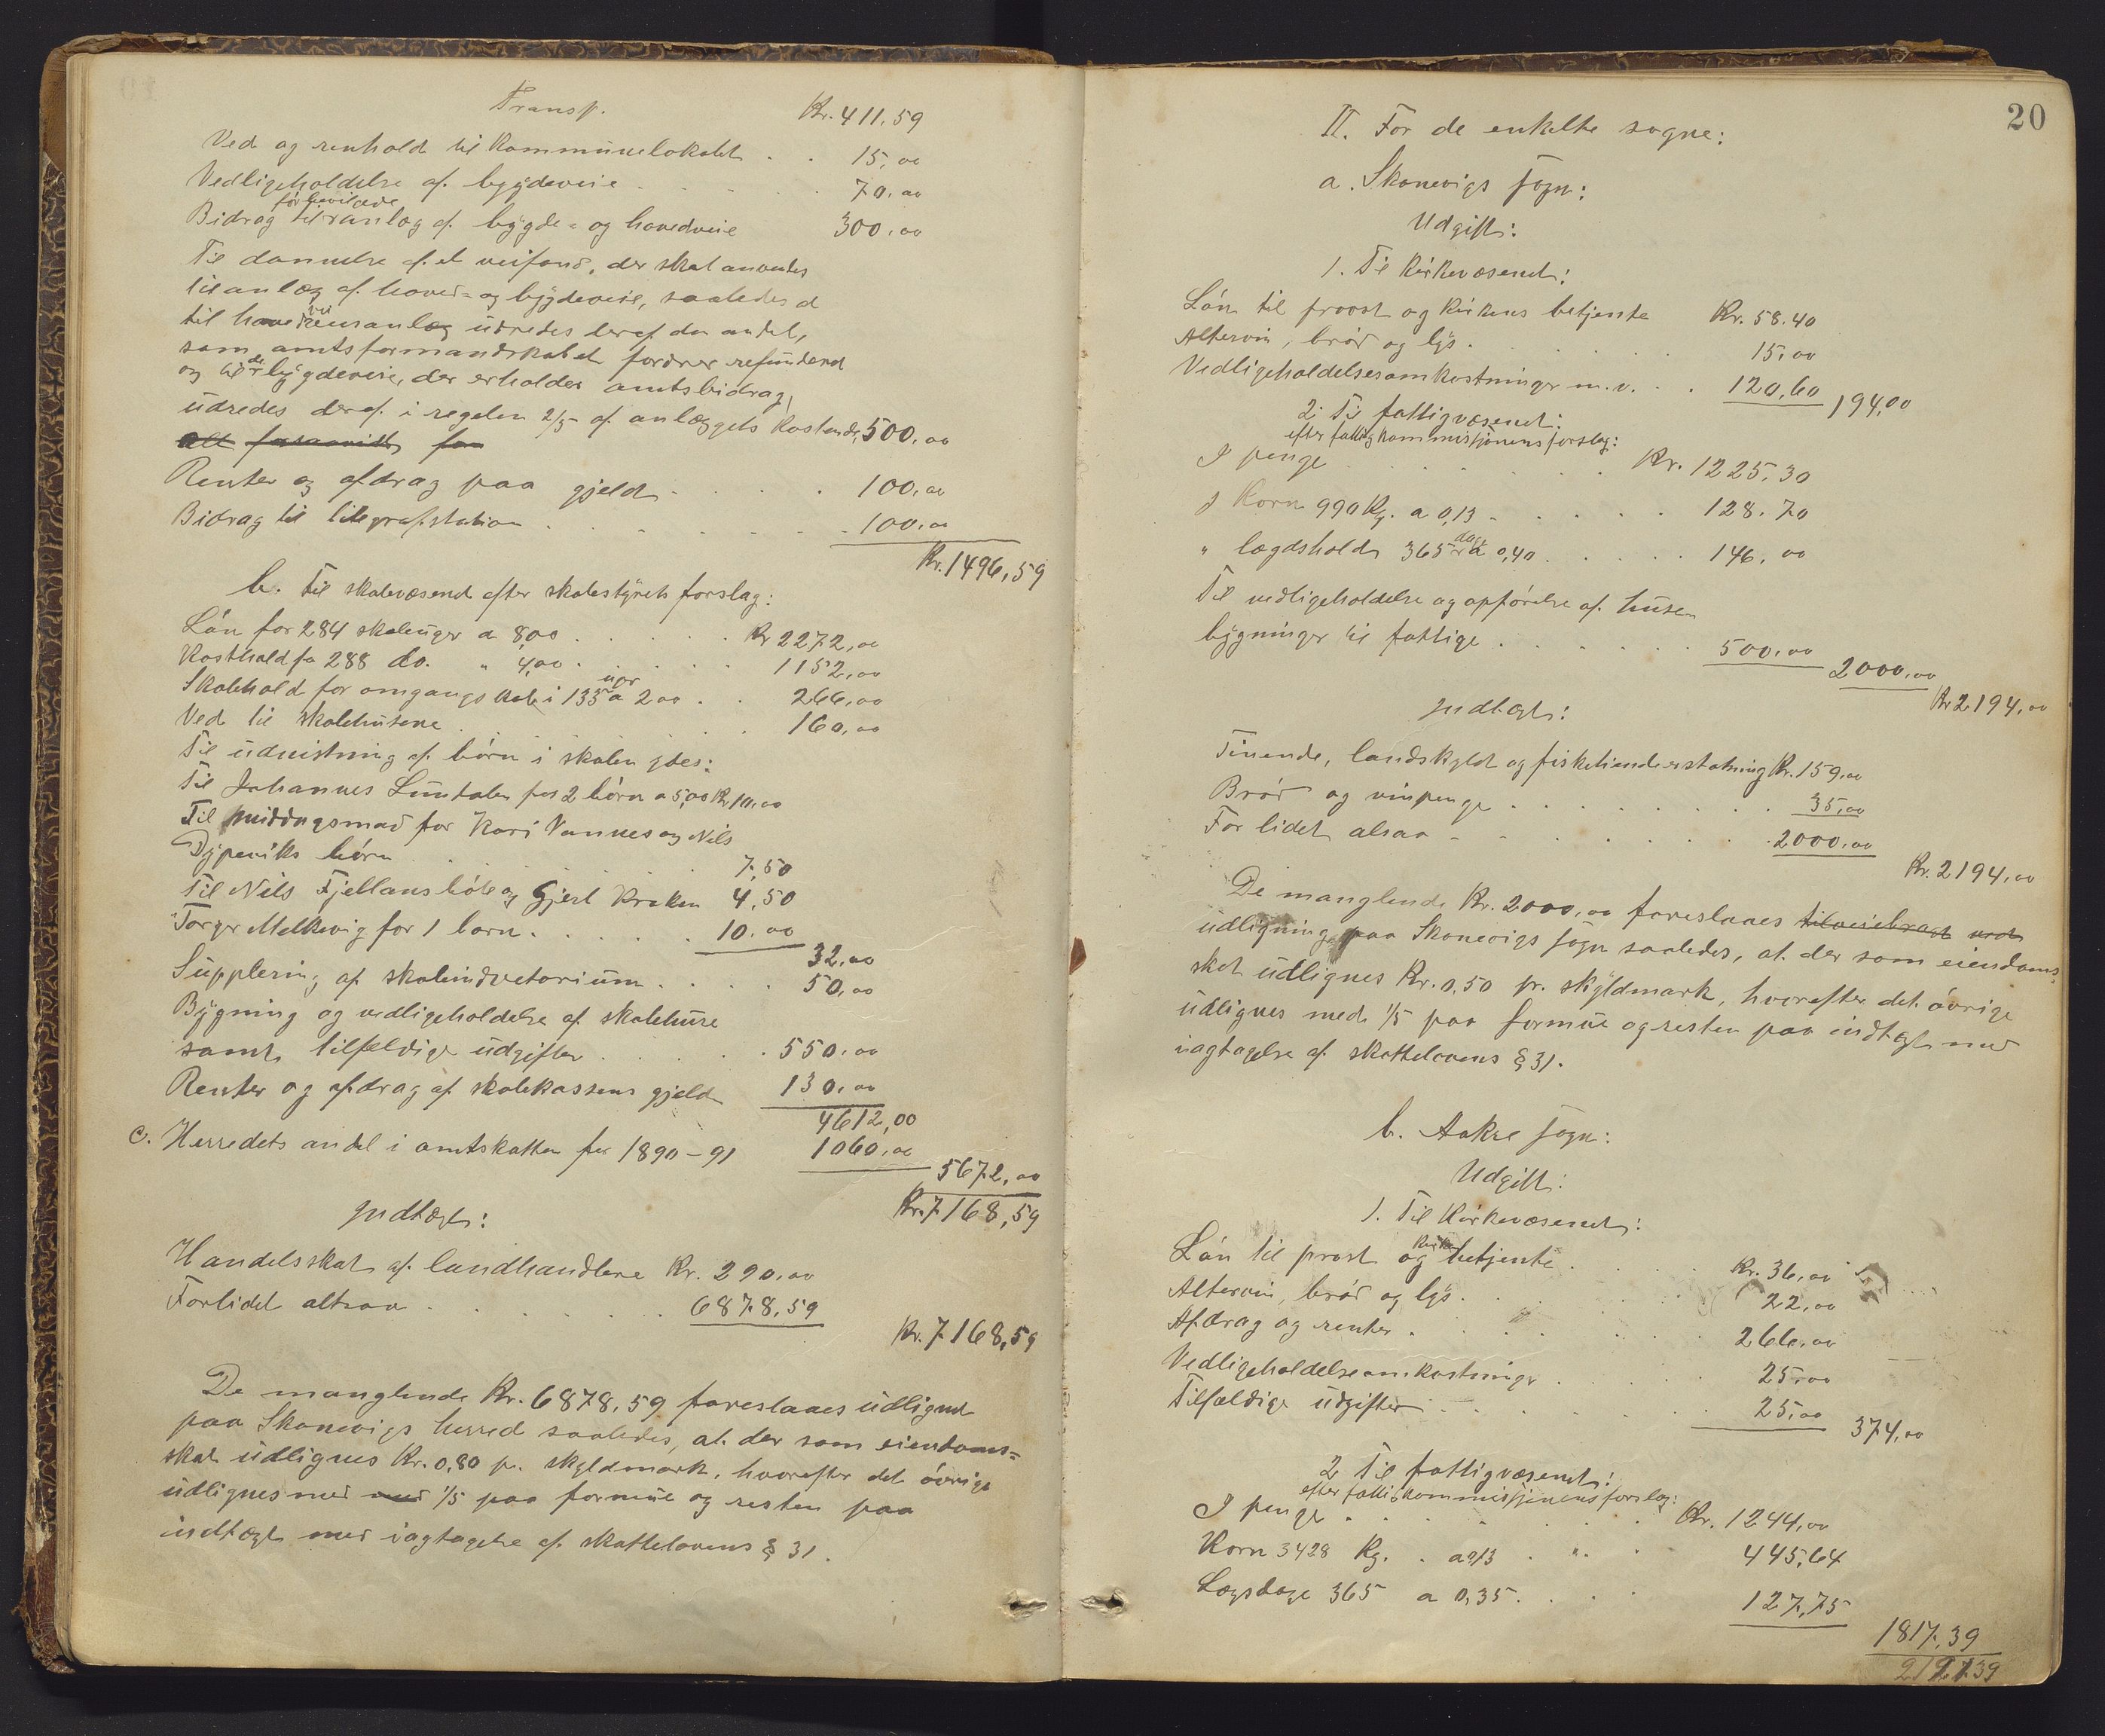 Transp. Kr. 411,59
Ved og renhold til Kommunelokalet . . 15,00
Vedligeholdelse af bygdeveie . . . . 70,00
Bidrag til forhenværende anlæg af bygde- og hovedveie 300,00
Til dannelse af et veifond, der skal anvendes
til anlæg af hoved- og bygdeveie, saaledes at
til hovedveisanlæg udredes deraf den andel,
som amtsformandskabet fordrer refunderet
og til de bygdeveie, der erholder amtsbidrag,
udredes deraf i regelen 2/5 af anlæggets kostende, 500,00
Renter og afdrag paa gjeld . . . . 100,00
Bidrag til telegrafstation . . . . . 100,00
Kr. 1496,59
b. Til skolevæsenet efter skolestyrets forslag:
Løn for 284 skoleuger a 8,00 . . . . Kr 2272,00
Kosthold for 288 do. " 4,00 . . . . 1152,00
Skolehold for omgangsskole i 133 uger a 2,00 . . 266,00
Ved til skolehusene . . . . . 160,00
Til undervisning af børn i skolen ydes:
Til Johannes Suntolen for 2 børn a 5,00 Kr. 10,00
Til middagsmad for Kari Vannes og Nils
Djupeviks børn . . . . 7,50
Til Nils Fjellanshøle og Gjert Kraken 4,50
Torger Melkevig for 1 barn . . . . . 10,00
32,00
Supplering af skoleindventarium . . . . 50,00
Bygning og vedligeholdelse af skolehuse
samt tilfældige udgifter . . . . . 550,00
Renter og afdrag af skolekassens gjeld 130,00
4612,00
c. Herredets andel i amtskatten for 1890-91 1060,00
5672,00
Kr. 7168,59
Indtægt:
Handelsskat af landhandlere Kr. 290,00
For lidet altsaa . . . . . . 6878,59
Kr. 7168,59
De manglende Kr. 6878,59 foreslaaes udlignet
paa Skonevigs herred saaledes, at der som eiendoms-
skat udlignes Kr. 0,80 pr. skyldmark, hvorefter det øvrige
udlignes med med 1/5 paa formue og resten paa
indtægt med iagtagelse af skattelovens § 31.
20
II. For de enkelte sogne:
a. Skonevigs sogn:
Udgift:
1. Til kirkevæsenet:
Løn til provst og kirkens betjente Kr. 58.40
Altervin, brød og lys . . . . . 15,00
Vedligeholdelsesomkostninger m.v. . . 120,60 194,00
2. Til fattigvæsenet:
efter fattigkommissjonens forslag:
I penge . . . . . . Kr. 1225,30
I Korn 990 Kg. a 0,13 . . . . . 128.70
" lægdshold 365 dage a 0,40 . . . . . 146,00
Til vedligeholdelse og opførelse af huse
bygninger til fattige . . . . . . 500,00 2000,00
Kr 2194,00
Indtægt:
Tiende, landskyld og fisketiendeerstatning Kr. 159,00
Brød og vinpenge . . . . . . . 35,00
For lidet altsaa . . . . . . . 2000,00
Kr. 2194,00
De manglende Kr. 2000,00 foreslaaes tilveiebragt ved
udligning paa Skonevigs sogn saaledes, at der som eiendoms-
skat udlignes Kr. 0,50 pr. skyldmark, hvorefter det øvrige
udlignes med 1/5 paa formue og resten paa indtægt med
iagtagelse af skattelovens § 31.
b. Aakre sogn:
Udgift:
1. Til Kirkevæsenet:
Løn til prost og kirkebetjente . . . . Kr. 36,00
Altervin, brød og lys . . . . . 22,00
Afdrag og renter . . . . . . 266,00
Vedligeholdelseomkostninger . . . . 25,00
Tilfældige udgifter . . . . . . 25,00 374,00
2 Til fattigvæsenet:
efter fattigkommissjonens forslag:
I penge . . . . . Kr. 1244,00
Korn 3428 Kg. . a 0,13 . . . 445,64
Lægsdage 365 a 0,35 . . . . 127,75
1817,39